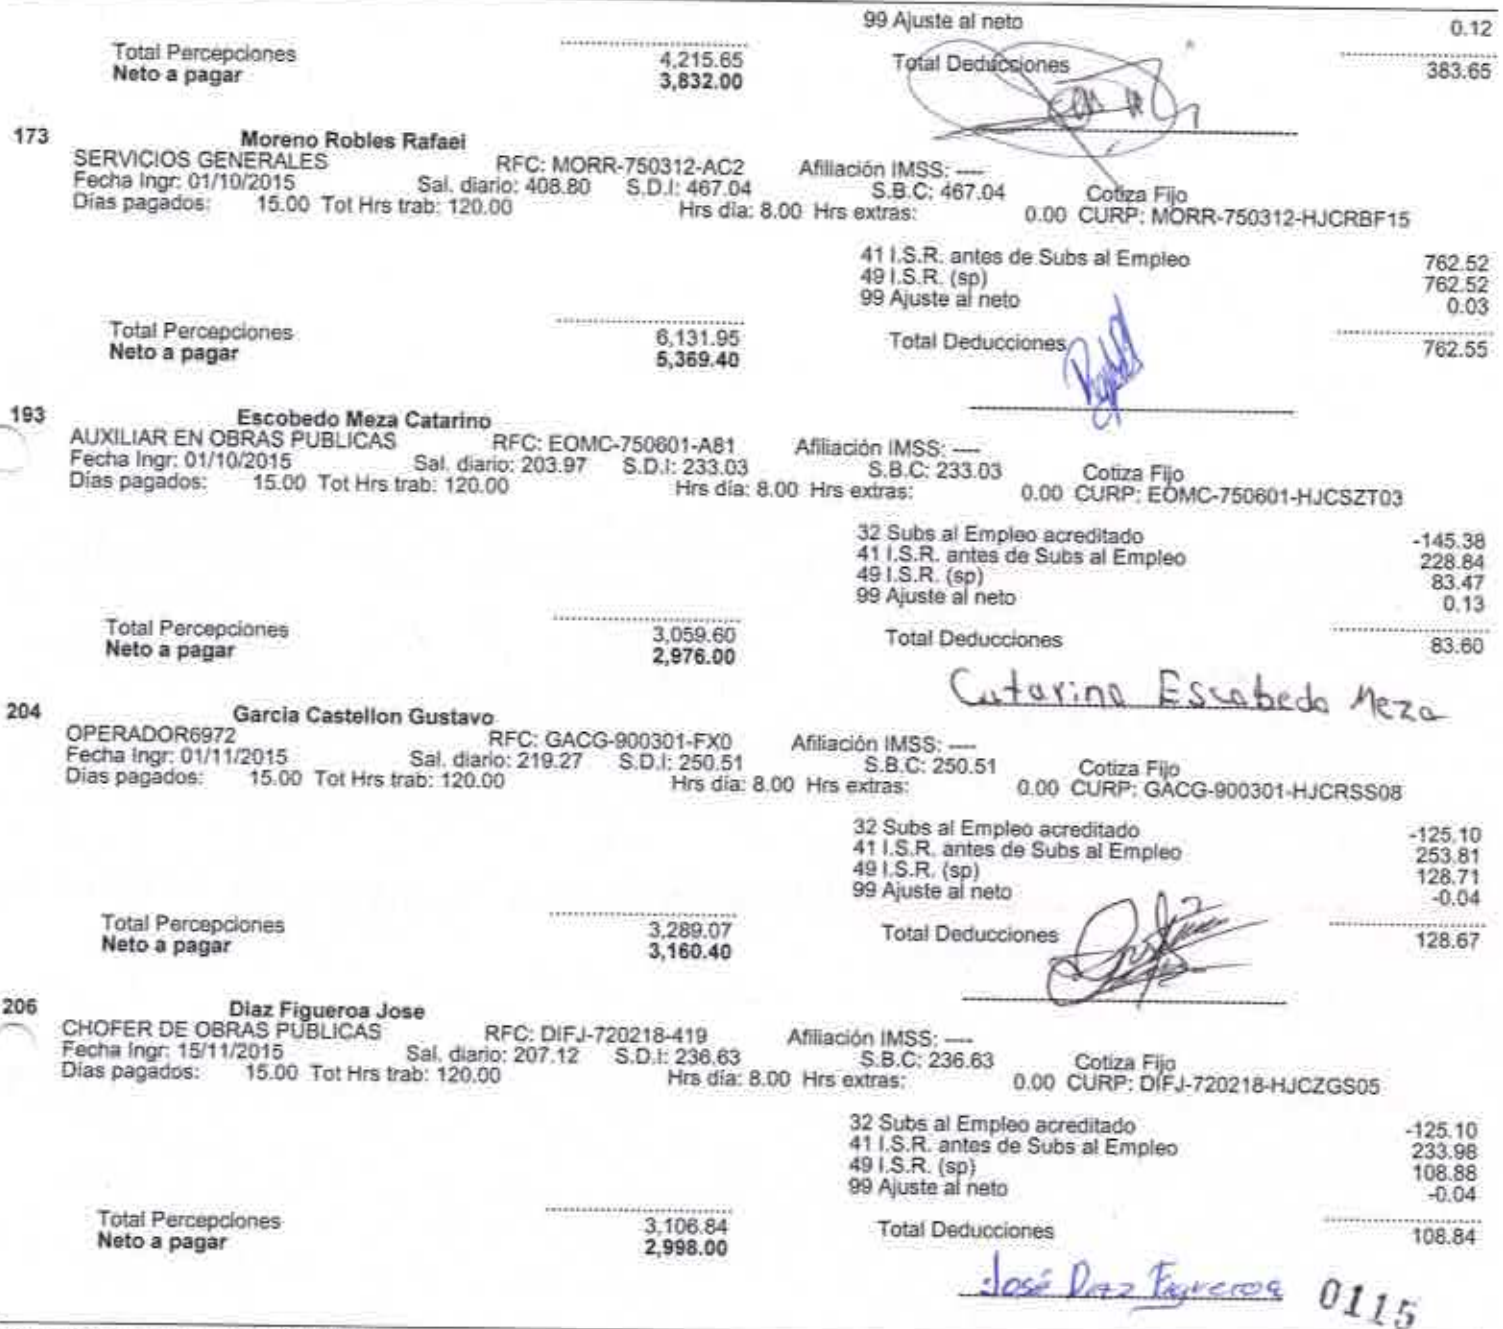 99 Ajuste al neto 0.12
Total Percepciones 4,215.65 Total Deducciones 383.65
Neto a pagar 3,832.00
173 Moreno Robles Rafael
SERVICIOS GENERALES RFC: MORR-750312-AC2 Afiliación IMSS: ----
Fecha Ingr: 01/10/2015 Sal. diario: 408.80 S.D.I: 467.04 S.B.C: 467.04 Cotiza Fijo
Días pagados: 15.00 Tot Hrs trab: 120.00 Hrs día: 8.00 Hrs extras: 0.00 CURP: MORR-750312-HJCRBF15
41 I.S.R. antes de Subs al Empleo 762.52
49 I.S.R. (sp) 762.52
99 Ajuste al neto 0.03
Total Percepciones 6,131.95 Total Deducciones 762.55
Neto a pagar 5,369.40
193 Escobedo Meza Catarino
AUXILIAR EN OBRAS PUBLICAS RFC: EOMC-750601-A81 Afiliación IMSS: ----
Fecha Ingr: 01/10/2015 Sal. diario: 203.97 S.D.I: 233.03 S.B.C: 233.03 Cotiza Fijo
Días pagados: 15.00 Tot Hrs trab: 120.00 Hrs día: 8.00 Hrs extras: 0.00 CURP: EOMC-750601-HJCSZT03
32 Subs al Empleo acreditado -145.38
41 I.S.R. antes de Subs al Empleo 228.84
49 I.S.R. (sp) 83.47
99 Ajuste al neto 0.13
Total Percepciones 3,059.60 Total Deducciones 83.60
Neto a pagar 2,976.00
Catarino Escobedo Meza
204 Garcia Castellon Gustavo
OPERADOR6972 RFC: GACG-900301-FX0 Afiliación IMSS: ----
Fecha Ingr: 01/11/2015 Sal. diario: 219.27 S.D.I: 250.51 S.B.C: 250.51 Cotiza Fijo
Días pagados: 15.00 Tot Hrs trab: 120.00 Hrs día: 8.00 Hrs extras: 0.00 CURP: GACG-900301-HJCRSS08
32 Subs al Empleo acreditado -125.10
41 I.S.R. antes de Subs al Empleo 253.81
49 I.S.R. (sp) 128.71
99 Ajuste al neto -0.04
Total Percepciones 3,289.07 Total Deducciones 128.67
Neto a pagar 3,160.40
206 Diaz Figueroa Jose
CHOFER DE OBRAS PUBLICAS RFC: DIFJ-720218-419 Afiliación IMSS: ----
Fecha Ingr: 15/11/2015 Sal. diario: 207.12 S.D.I: 236.63 S.B.C: 236.63 Cotiza Fijo
Días pagados: 15.00 Tot Hrs trab: 120.00 Hrs día: 8.00 Hrs extras: 0.00 CURP: DIFJ-720218-HJCZGS05
32 Subs al Empleo acreditado -125.10
41 I.S.R. antes de Subs al Empleo 233.98
49 I.S.R. (sp) 108.88
99 Ajuste al neto -0.04
Total Percepciones 3,106.84 Total Deducciones 108.84
Neto a pagar 2,998.00
José Diaz Figueroa 0115